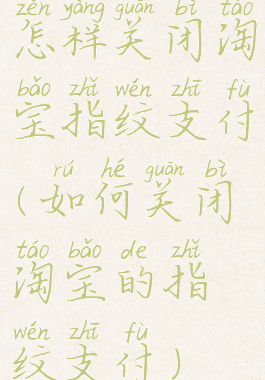 zěn yàng guān bì táo
怎样关闭淘
bǎo zhǐ wén zhī fù
宝指纹支付
rú hé guān bì
(如何关闭
táo bǎo de zhǐ
淘宝的指
wén zhī fù
纹支付)